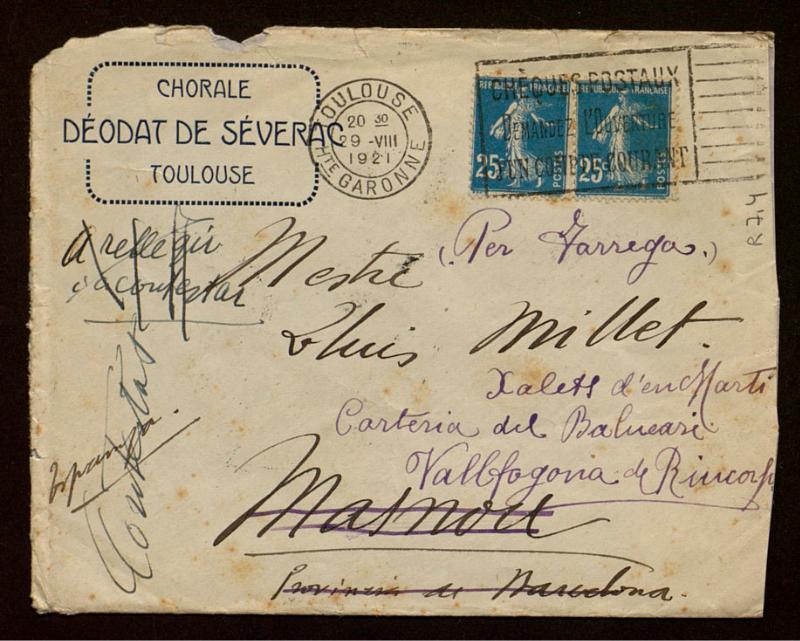 CHORALE
DÉODAT DE SÉVERAC
TOULOUSE
TOULOUSE
20 30
29 -VIII
1921
HTE GARONNE
CHÈQUES POSTAUX
DEMANDEZ L'OUVERTURE
D'UN COMPTE COURANT
25c POSTES
25c POSTES
R 7,4
A rellegir
i a contestar
(Per Tarrega.)
Mestre
Lluis Millet.
Xalets d'en Marti
Carteria del Balneari
Vallfogona de Riucorp
Contestat
Espanya.
Masnou
Provincia de Barcelona.